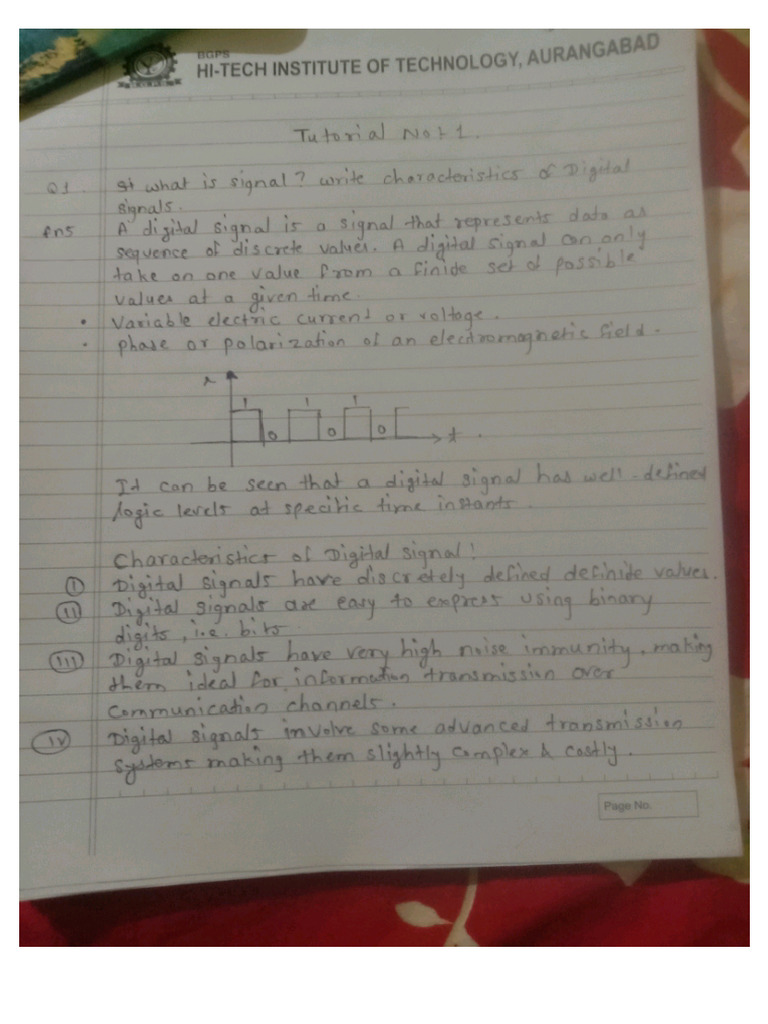 BGPS
HI-TECH INSTITUTE OF TECHNOLOGY, AURANGABAD
Tutorial No:- 1.
Q1. what is signal? write characteristics of Digital
signals.
Ans A digital signal is a signal that represents data as
sequence of discrete values. A digital signal can only
take on one value from a finide set of possible
values at a given time.
• Variable electric current or voltage.
• phase or polarization of an electromagnetic field.
1 1 1
0 0 0
t.
It can be seen that a digital signal has well-defined
logic levels at specific time instants.
Characteristics of Digital signal!
I Digital signals have discretely defined definide values.
II Digital signals are easy to express using binary
digits, i.e. bits.
III Digital signals have very high noise immunity, making
them ideal for information transmission over
communication channels.
IV Digital signals involve some advanced transmission
systems making them slightly complex & costly.
Page No.